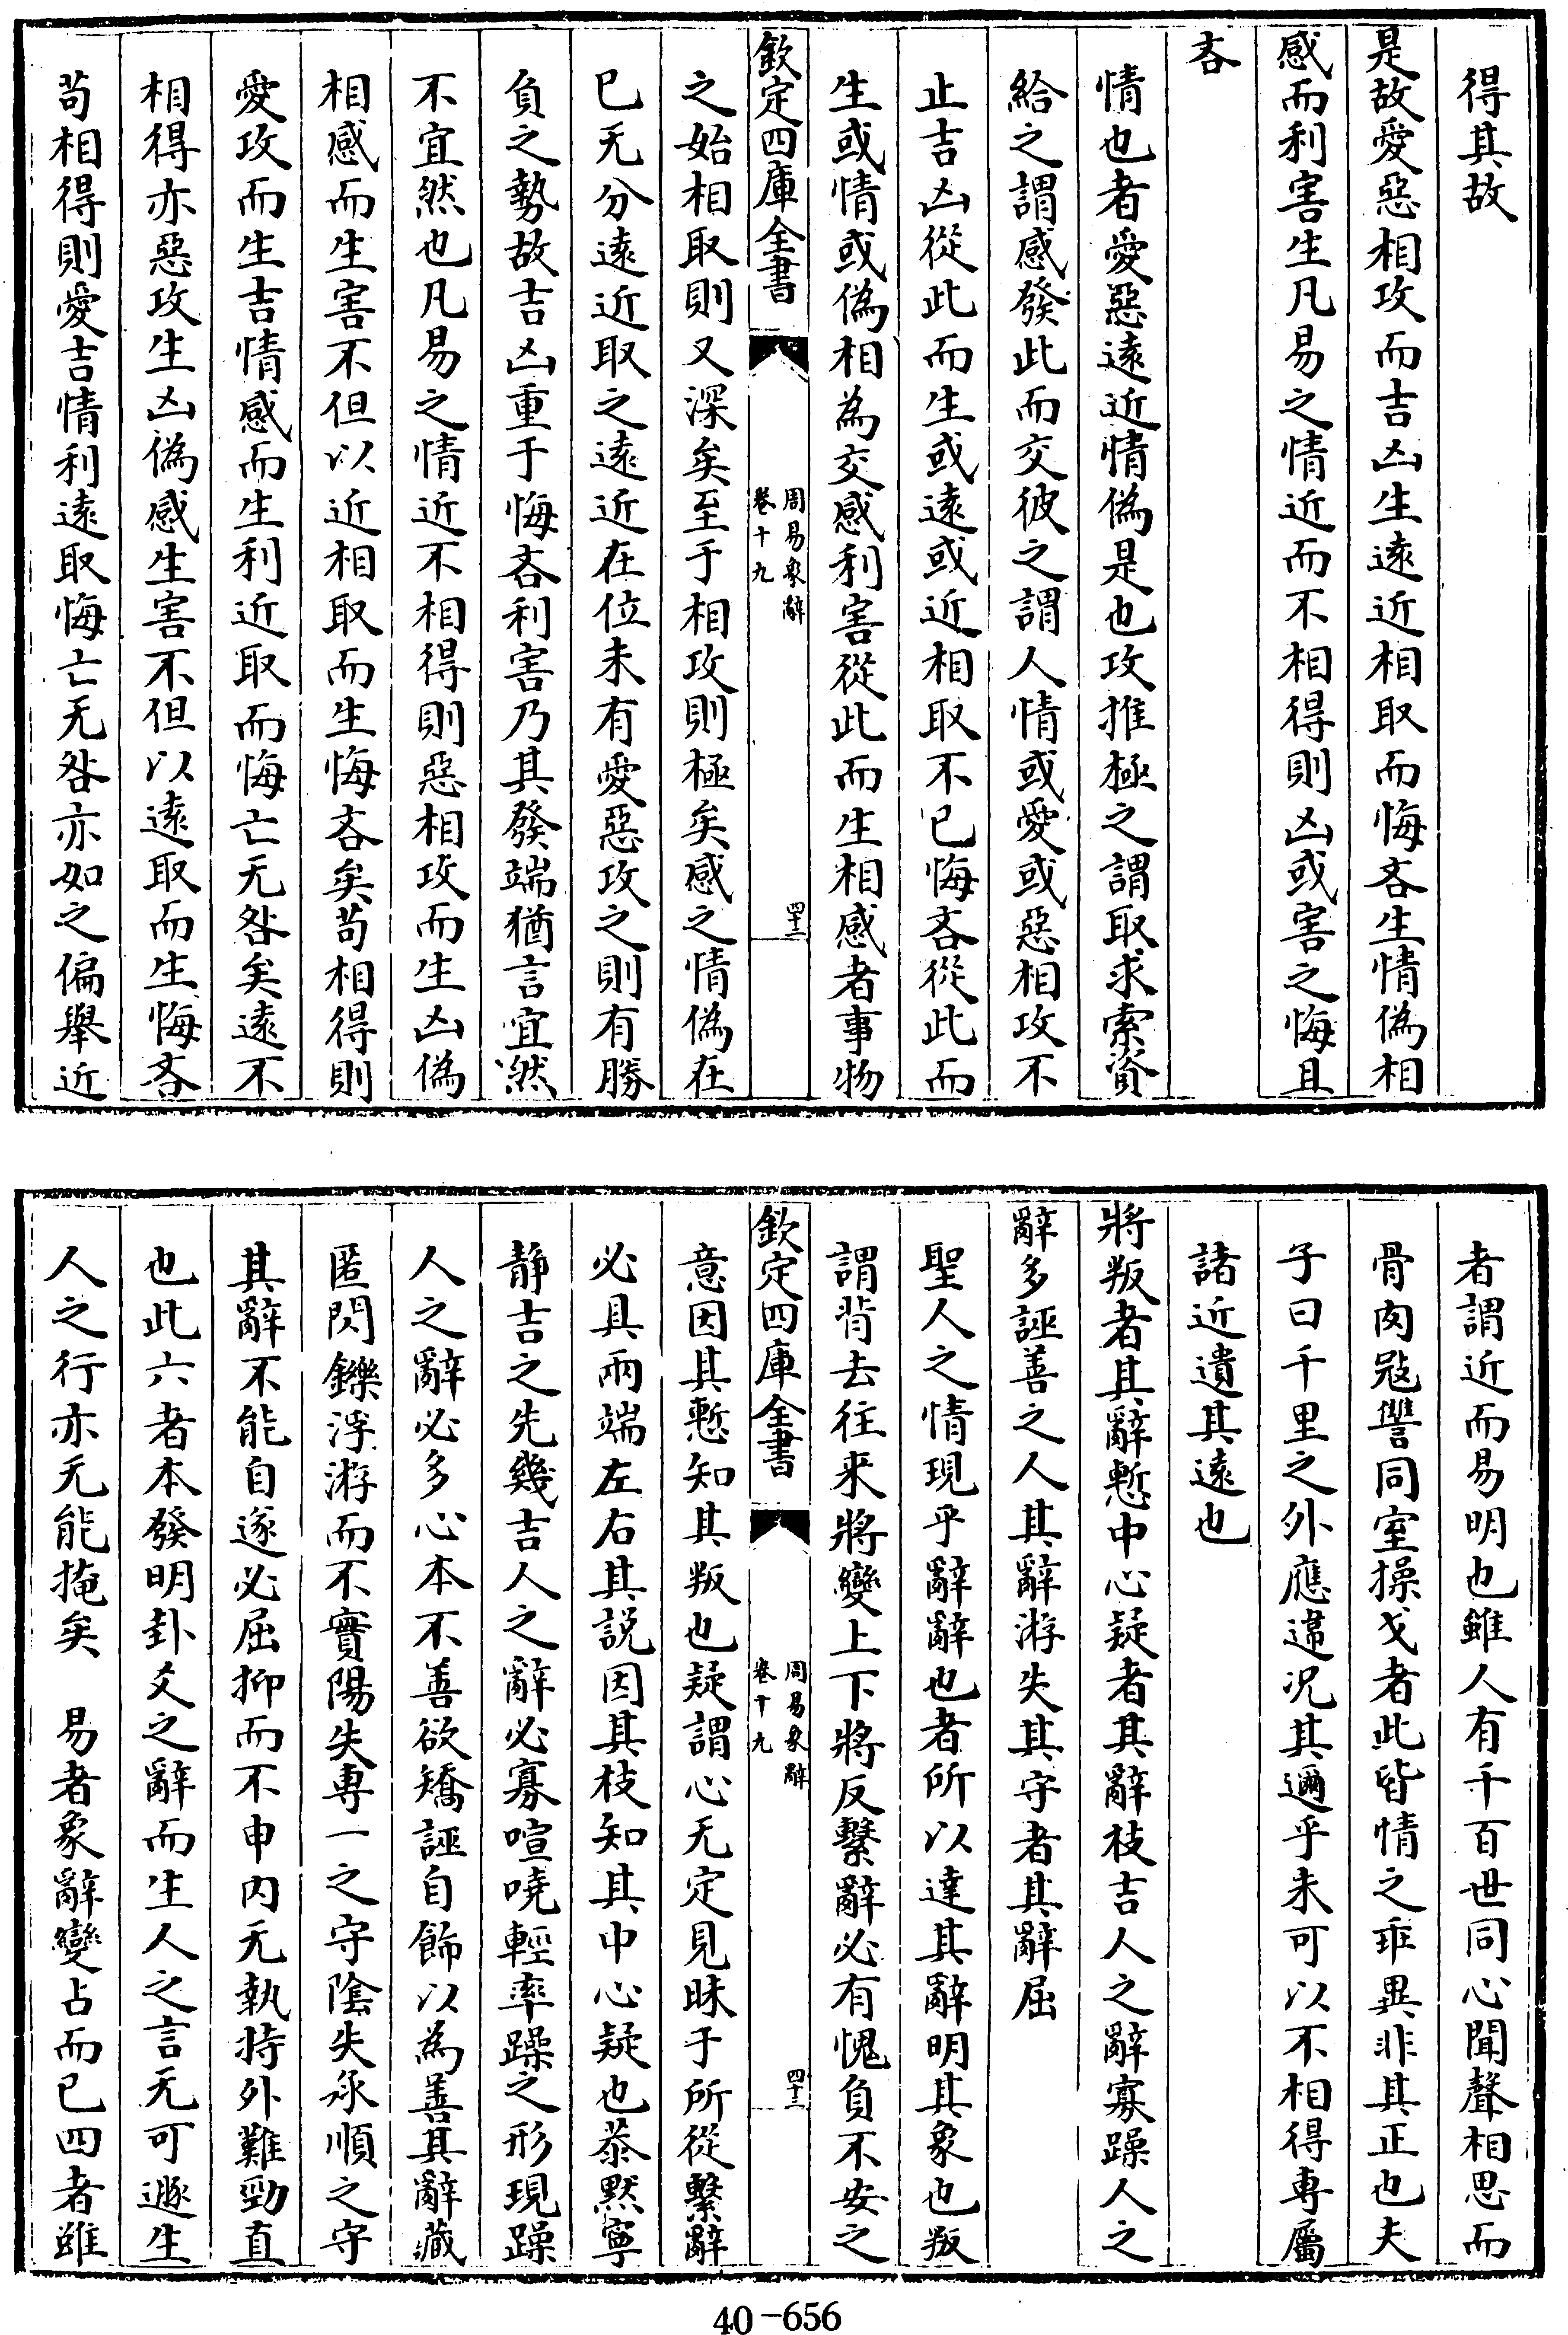 得其故
是故愛惡相攻而吉凶生遠近相取而悔吝生情偽相
感而利害生凡易之情近而不相得則凶或害之悔且
吝
情也者愛惡遠近情偽是也攻推極之謂取求索資
給之謂感發此而交彼之謂人情或愛或惡相攻不
止吉凶從此而生或遠或近相取不已悔吝從此而
生或情或偽相為交感利害從此而生相感者事物
欽定四庫全書
周易象辭
卷十九
四十二
之始相取則又深矣至于相攻則極矣感之情偽在
已无分遠近取之遠近在位未有愛惡攻之則有勝
負之勢故吉凶重于悔吝利害乃其發端猶言宜然
不宜然也凡易之情近不相得則惡相攻而生凶偽
相感而生害不但以近相取而生悔吝矣苟相得則
愛攻而生吉情感而生利近取而悔亡无咎矣遠不
相得亦惡攻生凶偽感生害不但以遠取而生悔吝
苟相得則愛吉情利遠取悔亡无咎亦如之偏舉近
者謂近而易明也雖人有千百世同心聞聲相思而
骨肉冦讐同室操戈者此皆情之乖異非其正也夫
子曰千里之外應違况其邇乎未可以不相得專屬
諸近遺其遠也
將叛者其辭慙中心疑者其辭枝吉人之辭寡躁人之
辭多誣善之人其辭游失其守者其辭屈
聖人之情現乎辭辭也者所以達其辭明其象也叛
謂背去往来將變上下將反繫辭必有愧負不安之
欽定四庫全書
周易象辭
卷十九
四十三
意因其慙知其叛也疑謂心无定見昧于所從繫辭
必具兩端左右其說因其枝知其中心疑也恭黙寧
靜吉之先幾吉人之辭必寡喧嘵輕率躁之形現躁
人之辭必多心本不善欲矯誣自飾以為善其辭藏
匿閃鑠浮游而不實陽失專一之守陰失承順之守
其辭不能自遂必屈抑而不申内无執持外難勁直
也此六者本發明卦爻之辭而生人之言无可遯生
人之行亦无能掩矣　易者象辭變占而已四者雖
40-656